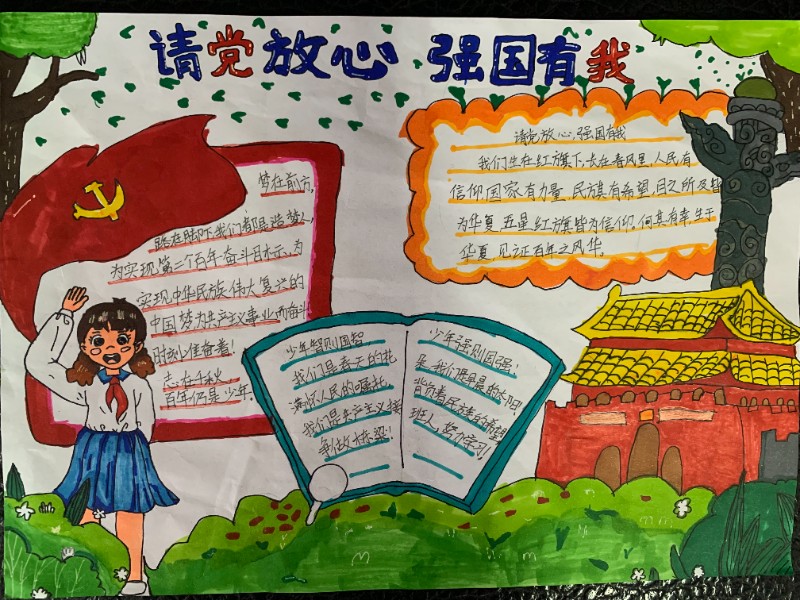 请党放心 强国有我
梦在前方,
路在脚下,我们都是追梦人,
为实现第二个百年奋斗目标,为
实现中华民族伟大复兴的
中国梦为共产主义事业而奋斗
时刻准备着!
志在千秋
百年仍是少年.
请党放心,强国有我
我们生在红旗下,长在春风里,人民有
信仰国家有力量,民族有希望,目之所及皆
为华夏,五星红旗皆为信仰,何其有幸生于
华夏,见证百年之风华.
少年智则国智
我们是春天的花
满怀人民的嘱托
我们是共产主义接
争做栋梁!
少年强则国强;
是我们是早晨的太阳
背负着民族的希望
班人,努力学习!